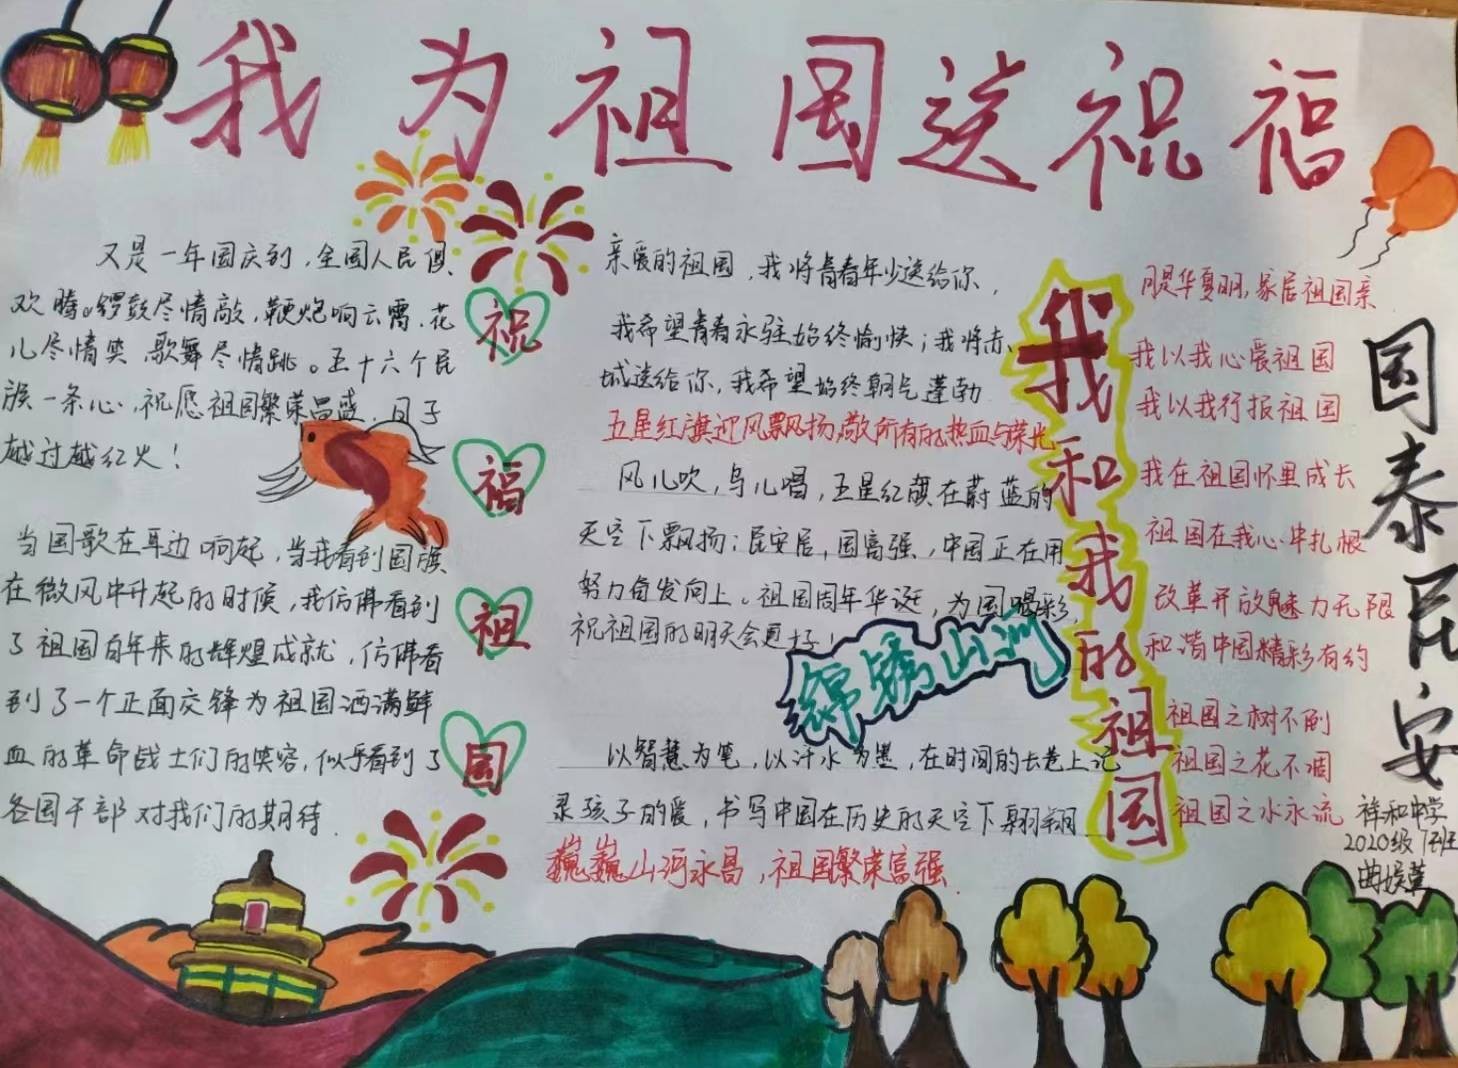 我为祖国送祝福
又是一年国庆到，全国人民俱
欢腾。锣鼓尽情敲，鞭炮响云霄，花
儿尽情笑 歌舞尽情跳。五十六个民
族一条心，祝愿祖国繁荣昌盛，日子
越过越红火！
当国歌在耳边响起，当我看到国旗
在微风中升起的时候，我仿佛看到
了祖国百年来的辉煌成就，仿佛看
到了一个正面交锋为祖国洒满鲜
血的革命战士们的笑容，似乎看到了
各国干部对我们的期待.
祝
福
祖
国
亲爱的祖国，我将青春年少送给你，
我希望青春永驻始终愉快；我将赤
城送给你，我希望始终朝气蓬勃
五星红旗迎风飘扬，敬所有的热血与荣光
风儿吹，鸟儿唱，五星红旗在蔚蓝的
天空下飘扬；民安居，国富强，中国正在用
努力奋发向上。祖国周年华诞，为国喝彩，
祝祖国的明天会更好！
锦绣山河
以智慧为笔，以汗水为墨，在时间的长卷上记
录孩子的爱，书写中国在历史的天空下翱翔
巍巍山河永昌，祖国繁荣富强.
我和我的祖国
月是华夏明，家居祖国亲
我以我心爱祖国
我以我行报祖国
我在祖国怀里成长
祖国在我心中扎根
改革开放魅力无限
和谐中国精彩有约
祖国之树不倒
祖国之花不凋
祖国之水永流
国泰民安
祥和中学
2020级 班
曲